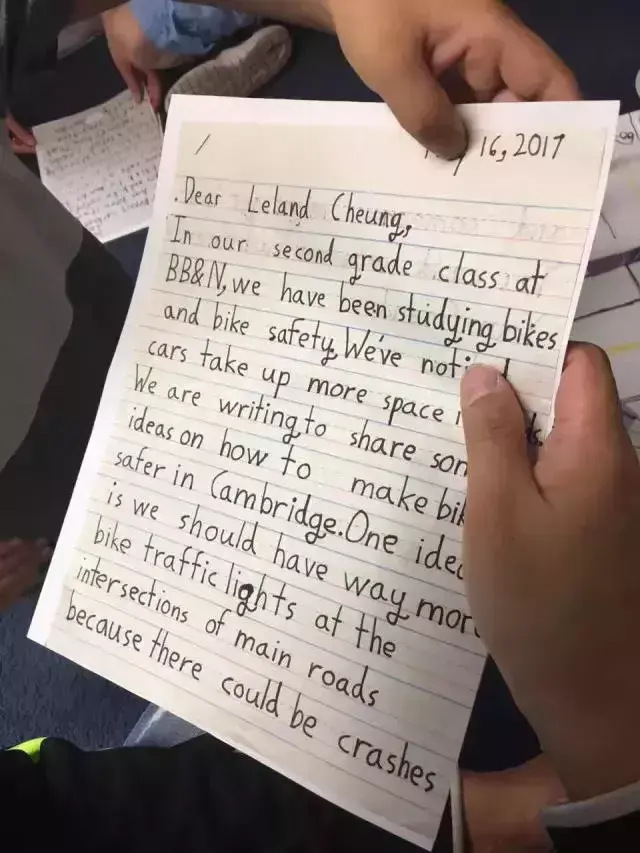 16, 2017
Dear Leland Cheung,
In our second grade class at
BB&N, we have been studying bikes
and bike safety. We've
cars take up more space
We are writing to share
ideas on how to make
safer in Cambridge. One
is we should have way
bike traffic lights at the
intersections of main roads
because there could be crashes